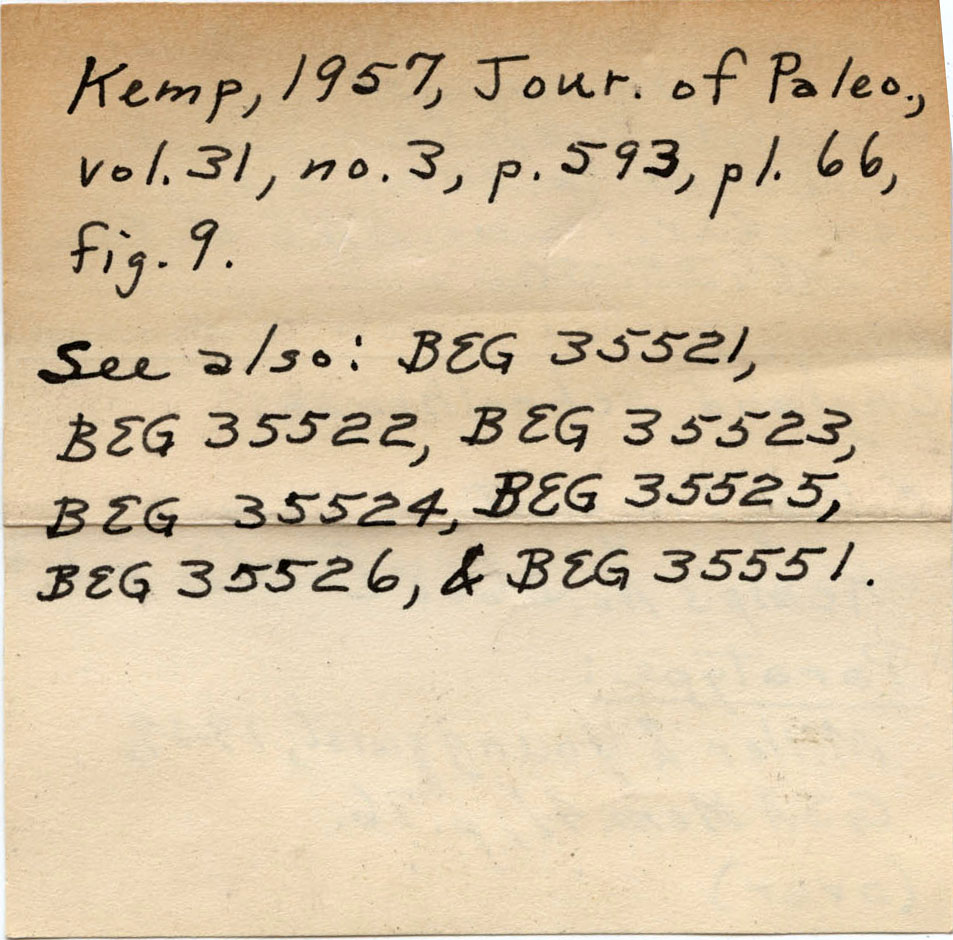 Kemp, 1957, Jour. of Paleo.,
vol. 31, no. 3, p. 593, pl. 66,
fig. 9.
See also: BEG 35521,
BEG 35522, BEG 35523,
BEG 35524, BEG 35525,
BEG 35526, & BEG 35551.